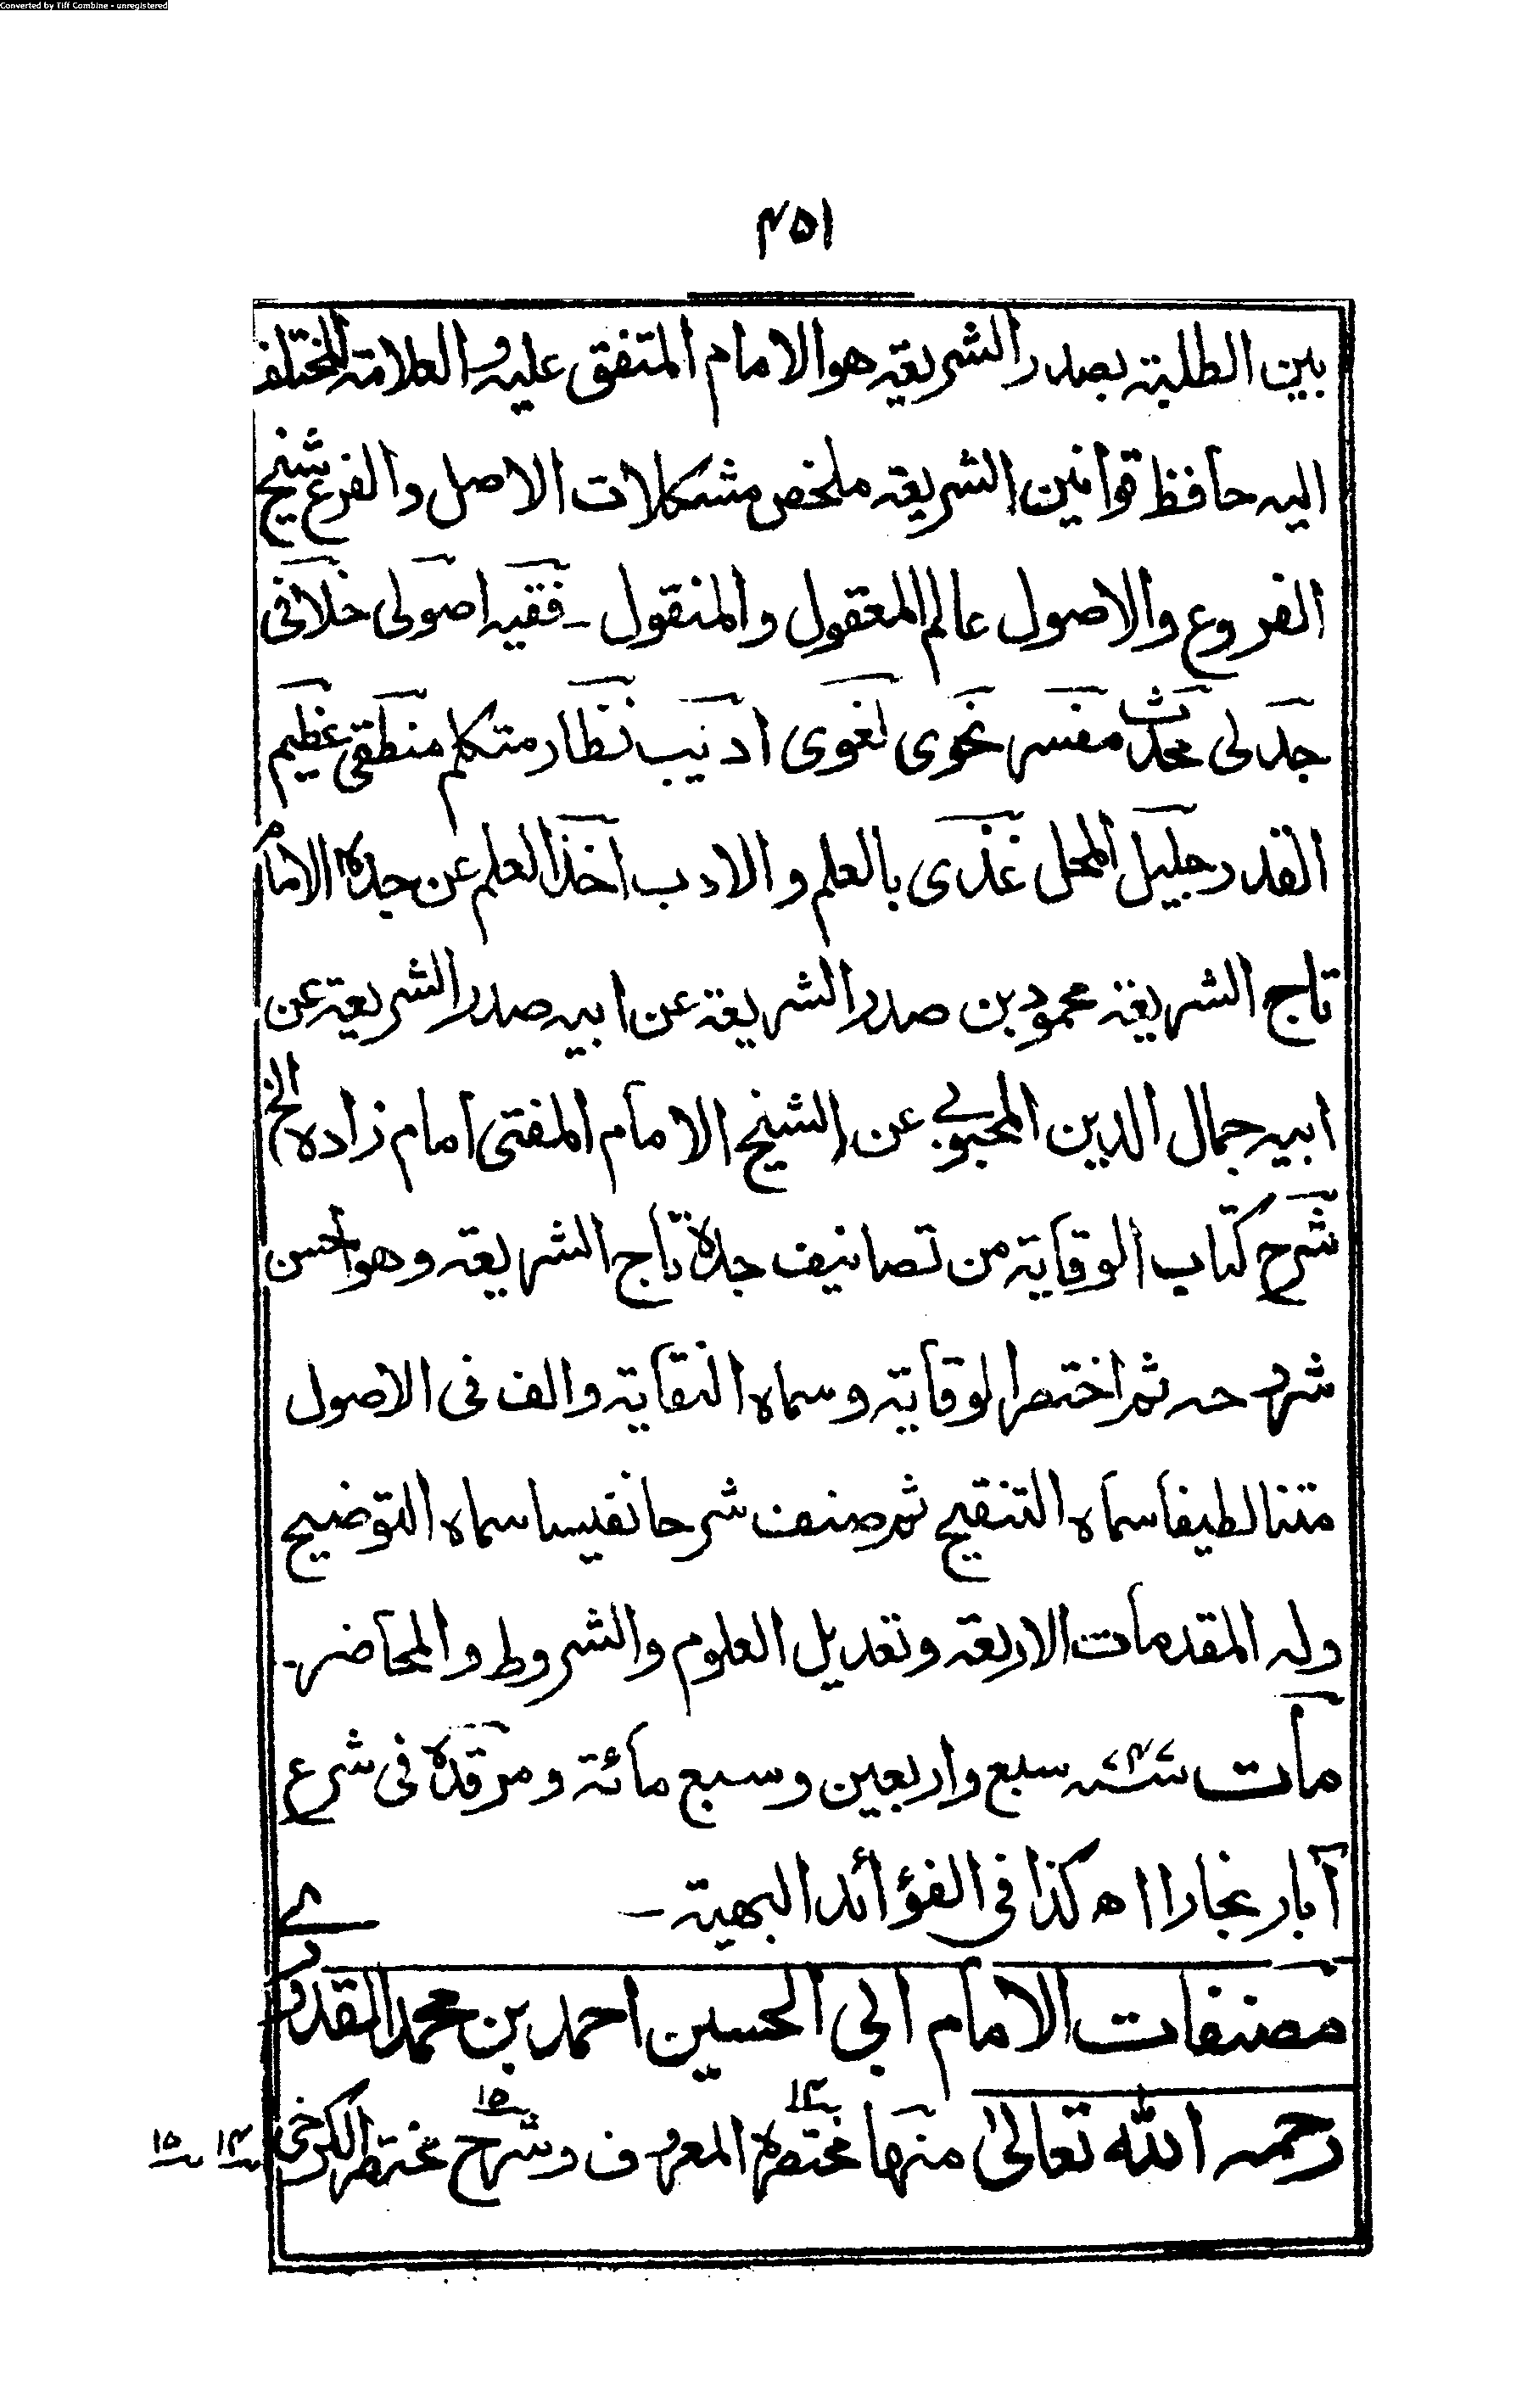 Converted by Tiff Combine - unregistered
۴۵۱
بین الطلبۃ بصدر الشریعۃ ھو الامام المتفق علیہ والعلامۃ المختلف
الیہ حافظ قوانین الشریعۃ ملخص مشکلات الاصل والفرع شیخ
الفروع والاصول عالم المعقول والمنقول ۔ فقیہ اصولی خلافی
جدلی محدث مفسر نحوی لغوی ادیب نظار متکلم منطقی عظیم
القدر جلیل المحل غذی بالعلم والادب اخذ العلم عن جدہ الامام
تاج الشریعۃ محمود بن صدر الشریعۃ عن ابیہ صدر الشریعۃ عن
ابیہ جمال الدین المحبوبی عن الشیخ الامام المفتی امام زادہ الخ
شرح کتاب الوقایۃ من تصانیف جدہ تاج الشریعۃ وھو احسن
شروحہ ثم اختصر الوقایۃ وسماہ النقایۃ والف فی الاصول
متنا لطیفا سماہ التنقیح ثم صنف شرحا نفیسا سماہ التوضیح
ولہ المقدمات الاربعۃ وتعدیل العلوم والشروط والمحاضر۔
مات ۷۴۷ سنۃ سبع واربعین وسبع مائۃ ومرقدہ فی شرع
آبار بخارا اھ کذا فی الفوٴائد البھیۃ ۔
مصنفات الامام ابی الحسین احمد بن محمد القدوری
رحمہ اللہ تعالیٰ منھا مختصرہ ۱۴ المعروف وشرح ۱۵ مختصر الکرخی
۱۴ ۱۵